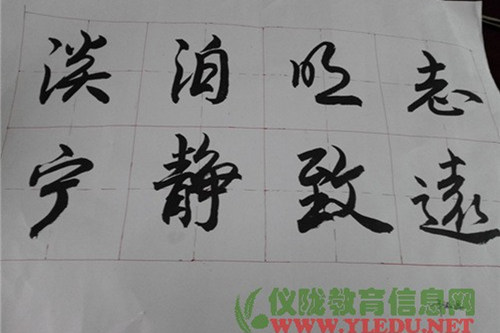 淡泊明志
宁静致远
仪陇教育信息网
www.YLEDU.NET